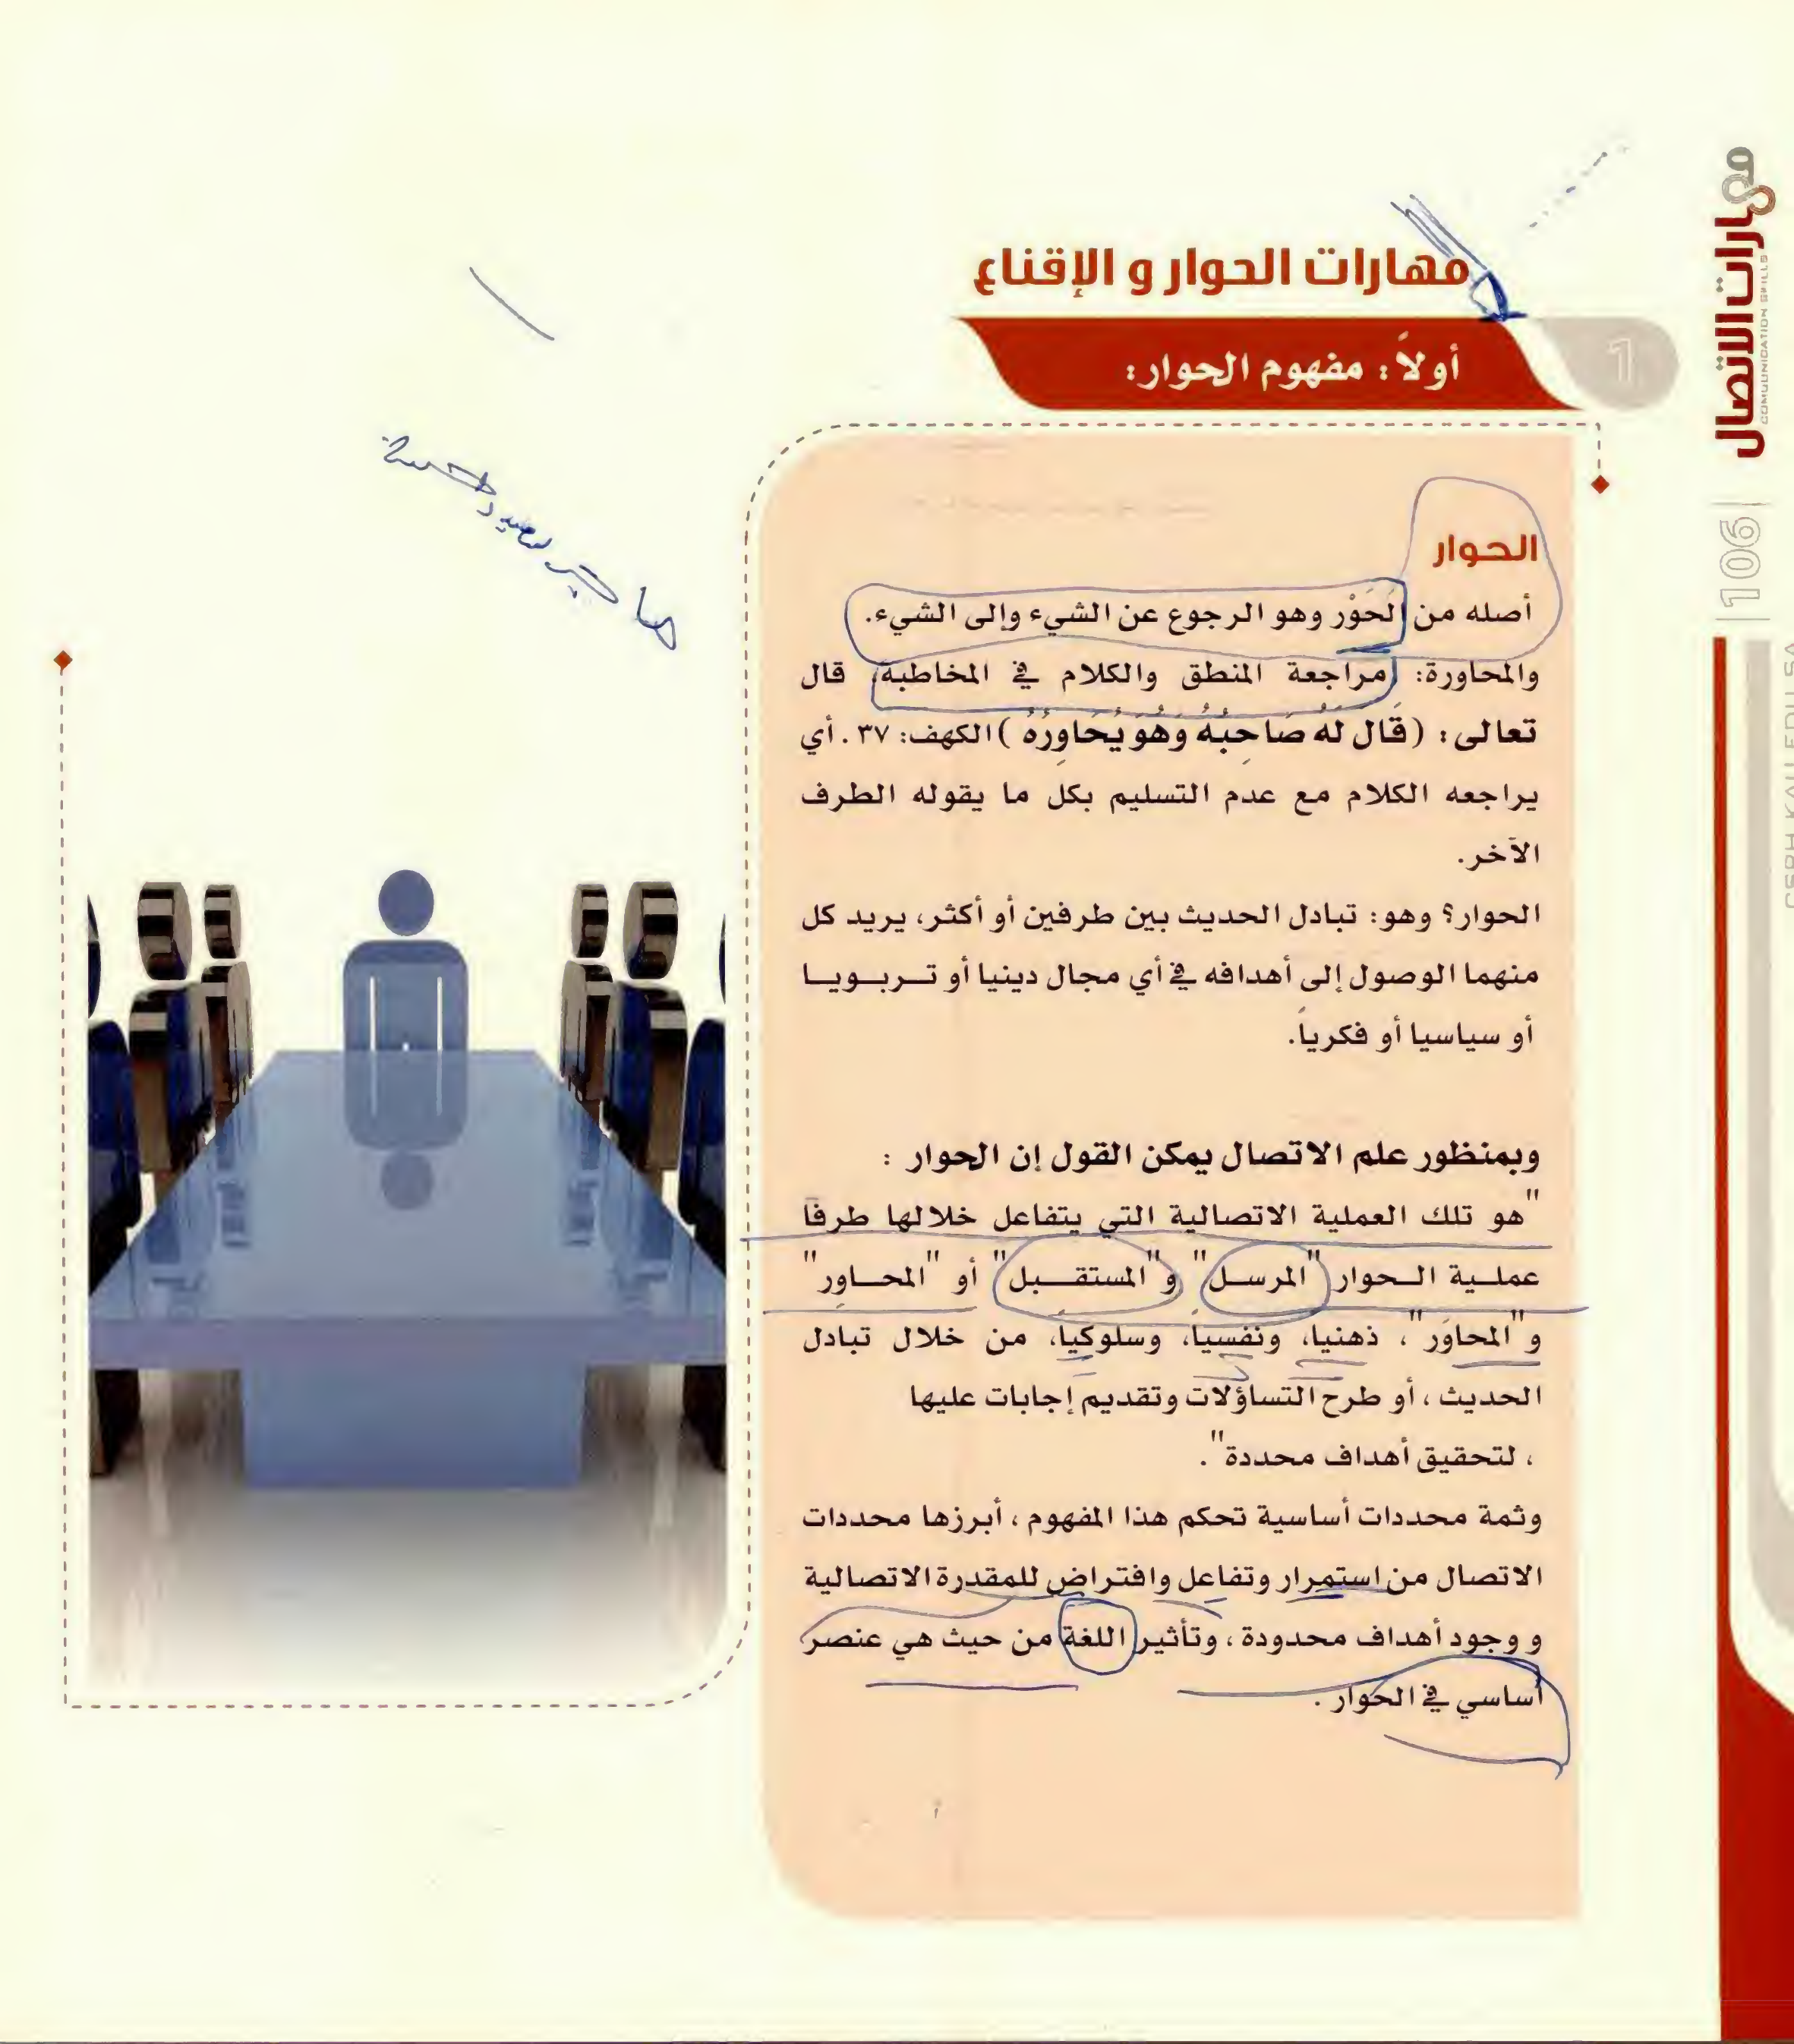 مهارات الاتصال
COMMUNICATION SKILLS
106
مهارات الحوار و الإقناع
1
أولاً: مفهوم الحوار:
الحوار
أصله من الحَوْر وهو الرجوع عن الشيء وإلى الشيء.
والمحاورة: مراجعة المنطق والكلام في المخاطبة، قال
تعالى: (قَالَ لَهُ صَاحِبُهُ وَهُوَ يُحَاوِرُهُ) الكهف: ٣٧. أي
يراجعه الكلام مع عدم التسليم بكل ما يقوله الطرف
الآخر.
الحوار؟ وهو: تبادل الحديث بين طرفين أو أكثر، يريد كل
منهما الوصول إلى أهدافه في أي مجال دينيا أو تربويا
أو سياسيا أو فكرياً.
وبمنظور علم الاتصال يمكن القول إن الحوار :
"هو تلك العملية الاتصالية التي يتفاعل خلالها طرفا
عملية الحوار "المرسل" و"المستقبل" أو "المحاوِر"
و"المحاوَر"، ذهنيا، ونفسياً، وسلوكياً، من خلال تبادل
الحديث ، أو طرح التساؤلات وتقديم إجابات عليها
، لتحقيق أهداف محددة".
وثمة محددات أساسية تحكم هذا المفهوم ، أبرزها محددات
الاتصال من استمرار وتفاعل وافتراض للمقدرة الاتصالية
و وجود أهداف محدودة ، وتأثير اللغة من حيث هي عنصر
أساسي في الحوار .